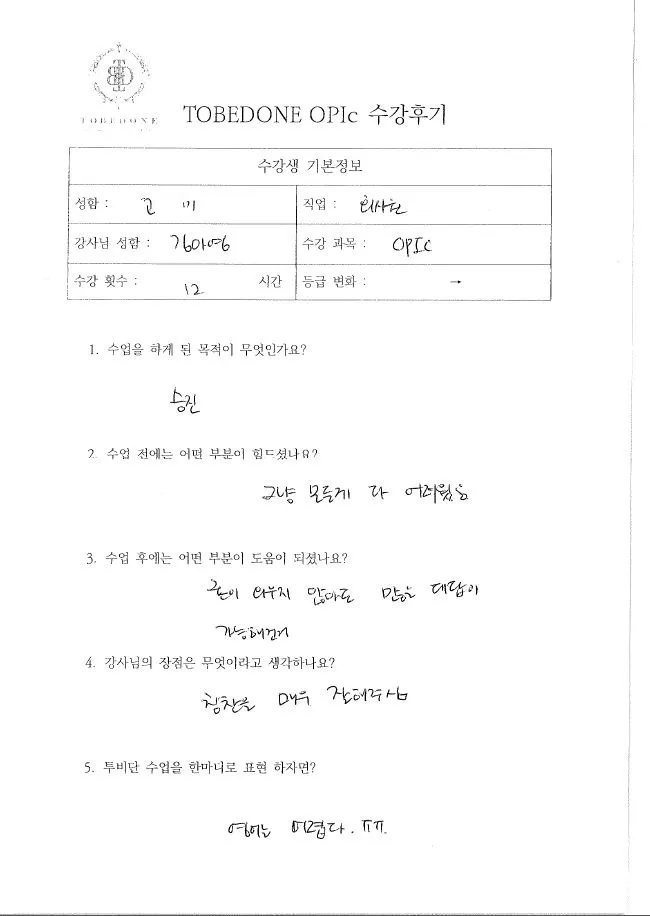 TOBEDONE
TOBEDONE OPIc 수강후기
수강생 기본정보
성함 : 고 미 직업 : 회사원
강사님 성함 : 김아영 수강 과목 : OPIc
수강 횟수 : 12 시간 등급 변화 : →
1. 수업을 하게 된 목적이 무엇인가요?
승진
2. 수업 전에는 어떤 부분이 힘드셨나요?
그냥 모든게 다 어려웠음
3. 수업 후에는 어떤 부분이 도움이 되셨나요?
굳이 외우지 않아도 많은 대답이
가능해진거
4. 강사님의 장점은 무엇이라고 생각하나요?
칭찬을 매우 잘해주심
5. 투비단 수업을 한마디로 표현 하자면?
영어는 어렵다. ㅠㅠ.